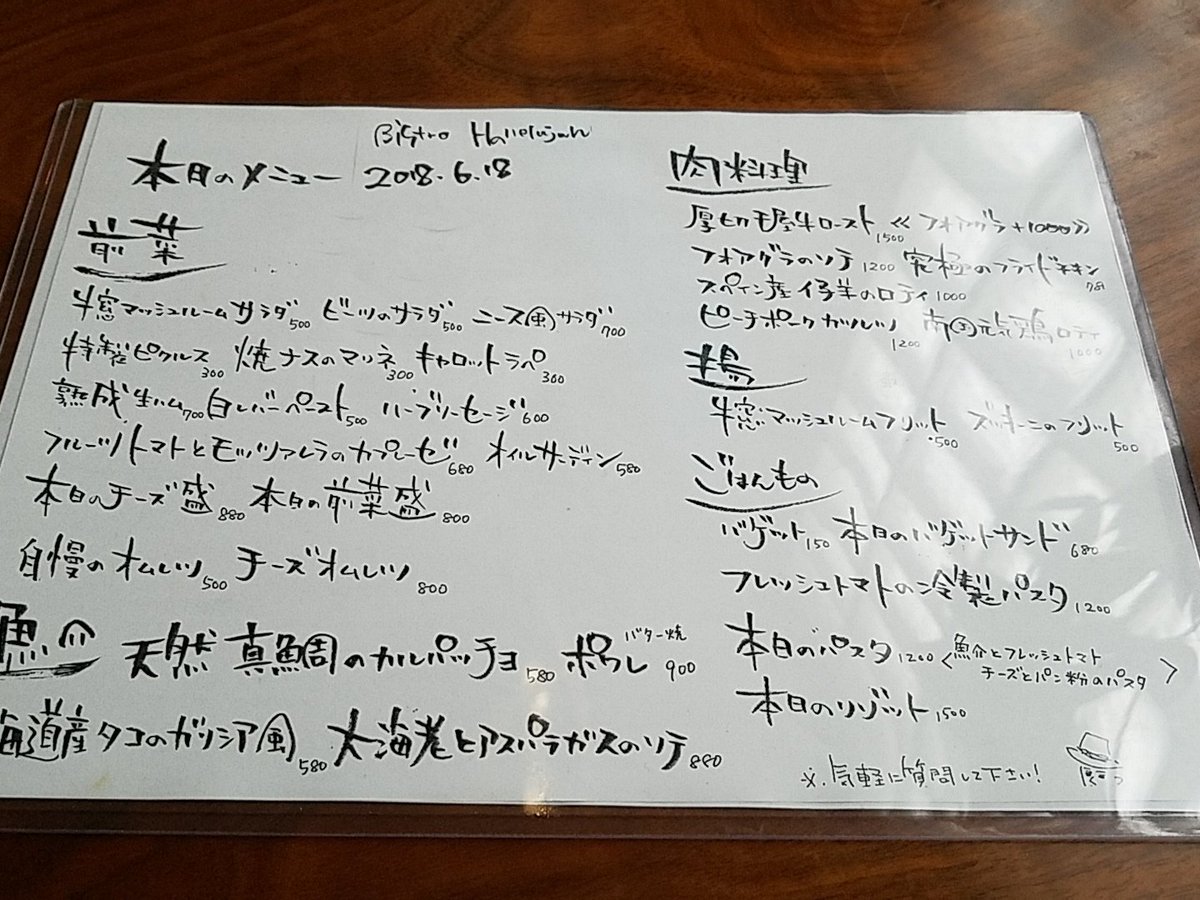 Bistro Hallelujah
本日のメニュー 2018.6.18
前菜
牛窓マッシュルームサラダ500 ビーツのサラダ500 ニース風サラダ700
特製ピクルス300 焼ナスのマリネ300 キャロットラペ300
熟成生ハム700 白レバーペースト500 ハーブソーセージ600
フルーツトマトとモッツァレラのカプレーゼ680 オイルサーディン580
本日のチーズ盛880 本日の前菜盛800
自慢のオムレツ500 チーズオムレツ800
魚介
天然真鯛のカルパッチョ580 ポワレ バター焼 900
海道産タコのガリシア風580 大海老とアスパラガスのソテー880
肉料理
厚切モモ牛ロースト1500 《フォアグラ+1000》
フォアグラのソテー1200 究極のフライドチキン781
スペイン産仔羊のロティ1000
ピーチポークカツレツ1200 南国元気鶏ロティ1000
揚
牛窓マッシュルームフリット500 ズッキーニのフリット500
ごはんもの
バゲット150 本日のバゲットサンド680
フレッシュトマトの冷製パスタ1200
本日のパスタ1200 <魚介とフレッシュトマト
チーズとパン粉のパスタ>
本日のリゾット1500
※.気軽に質問して下さい!